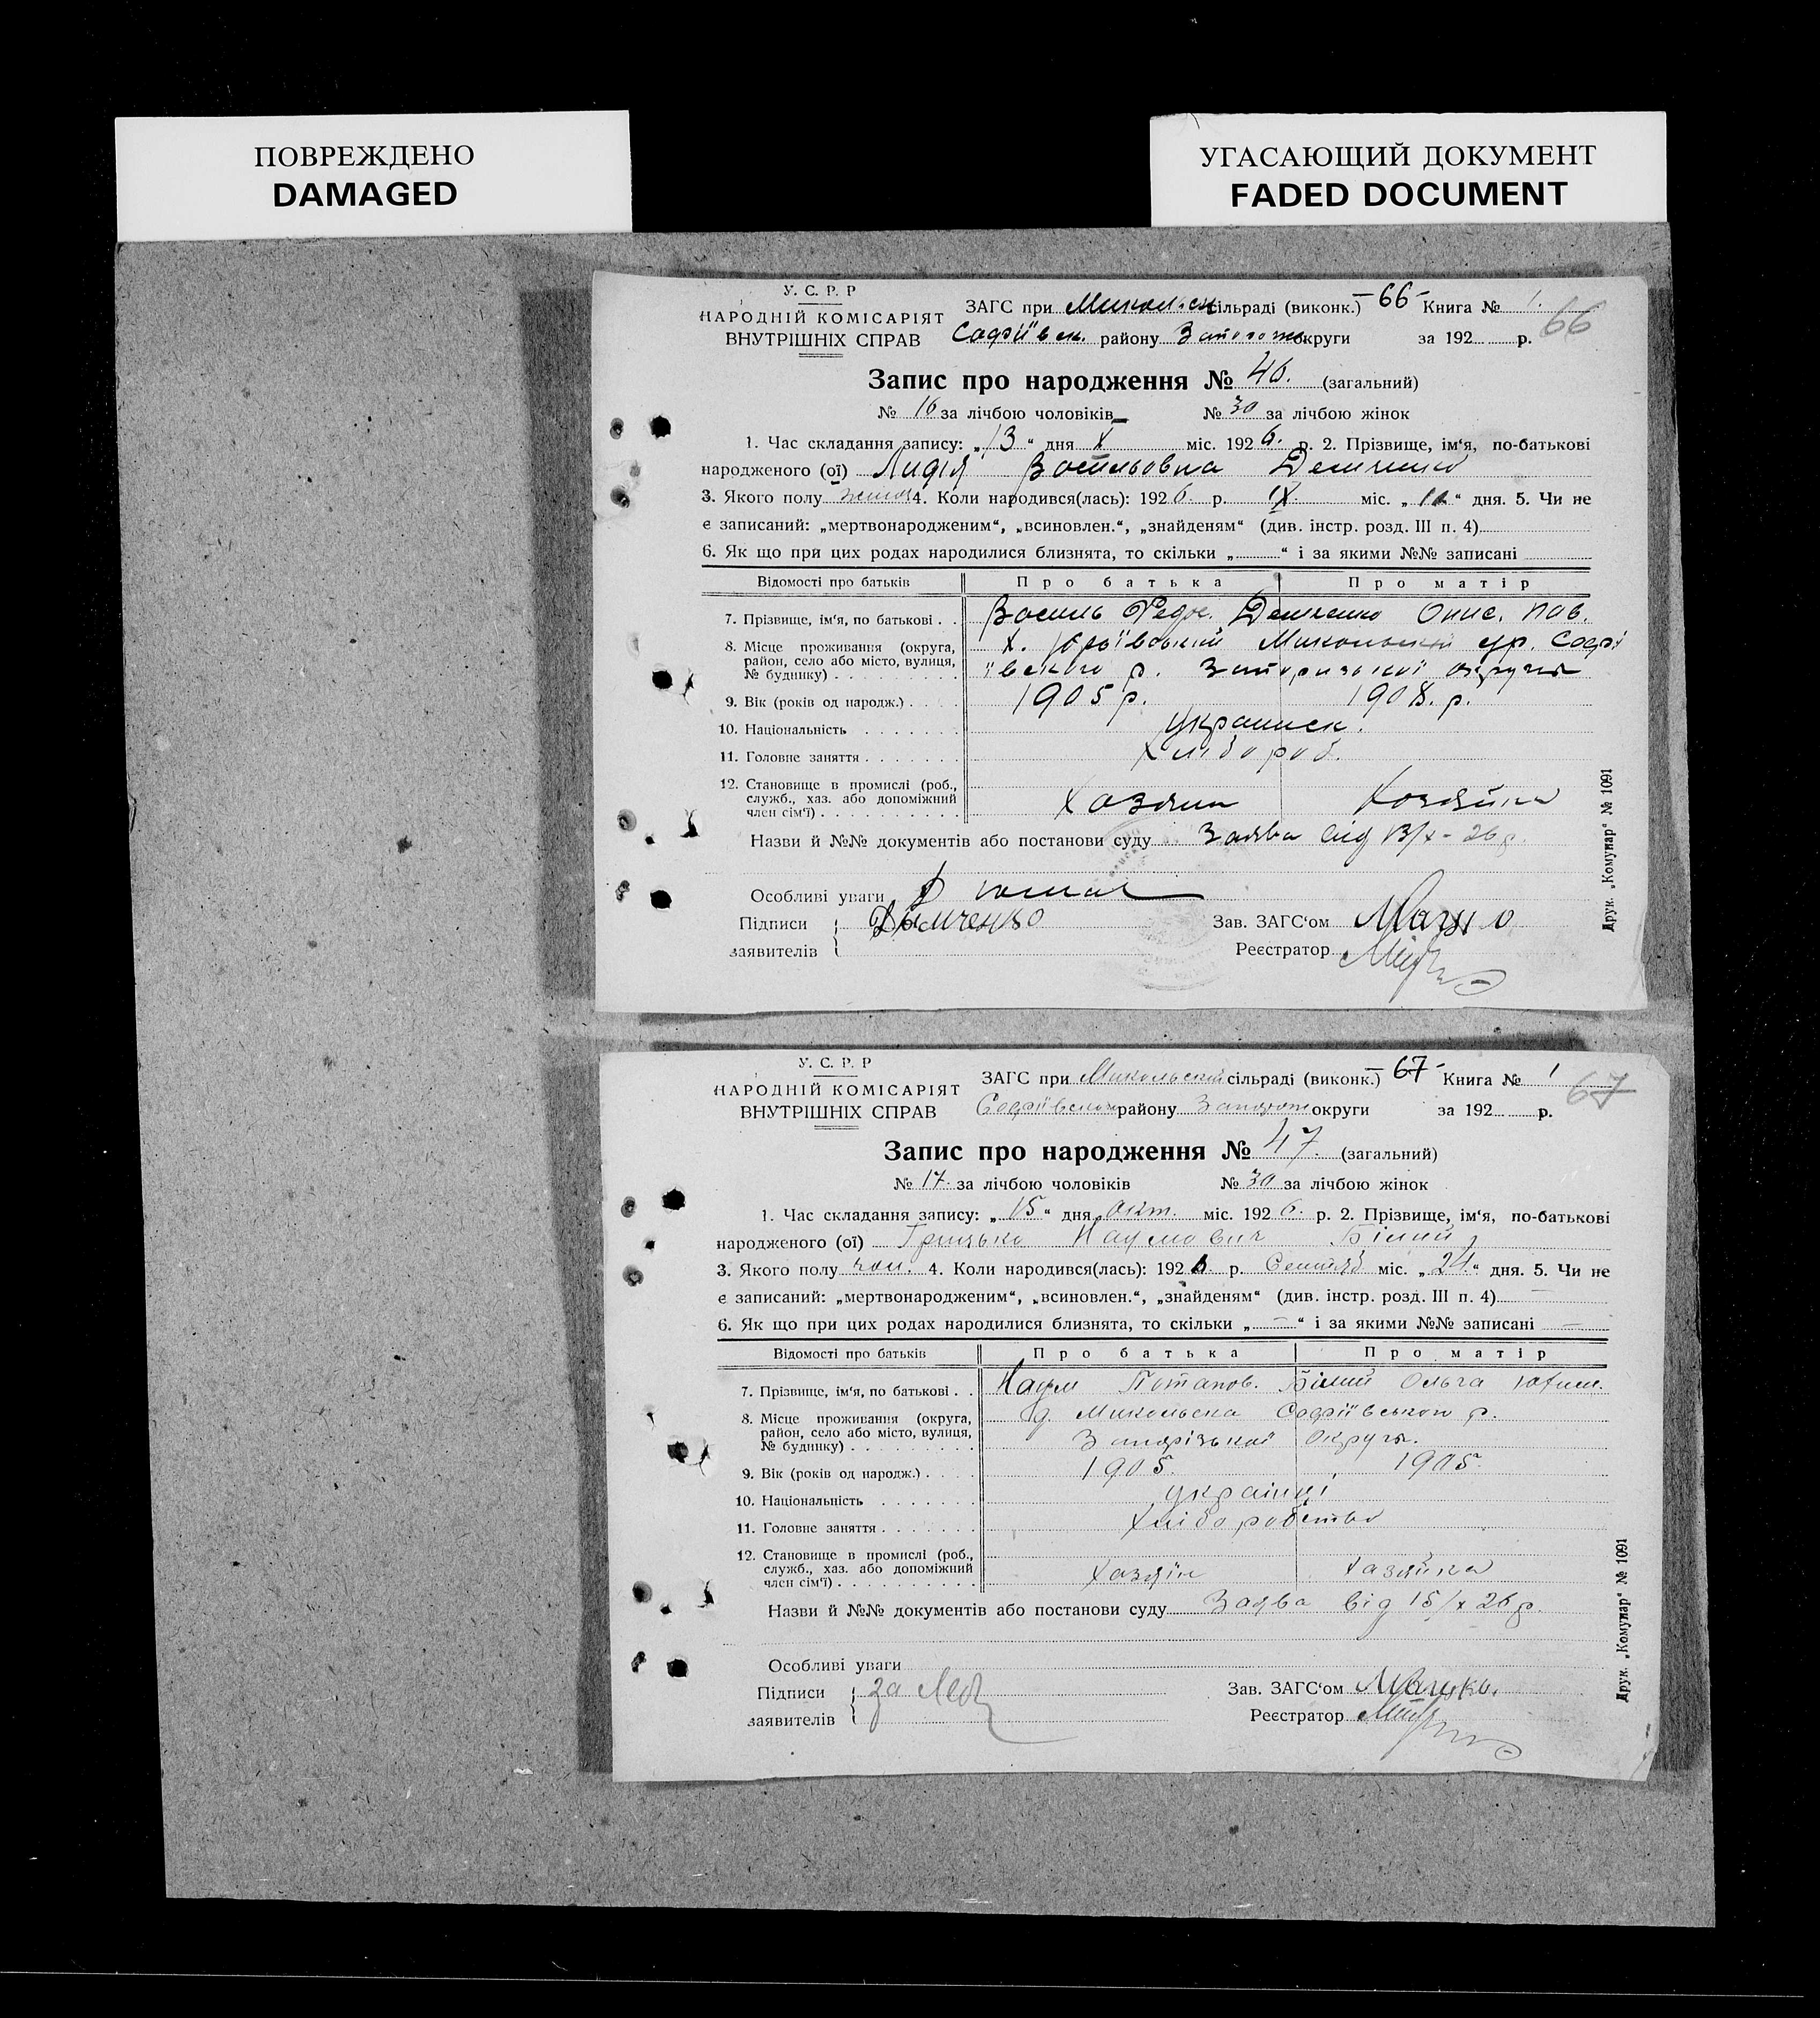 ПОВРЕЖДЕНО
DAMAGED
УГАСАЮЩИЙ ДОКУМЕНТ
FADED DOCUMENT
У. С. Р. Р
НАРОДНІЙ КОМІСАРІЯТ
ВНУТРІШНІХ СПРАВ
ЗАГС при Микольск сільраді (виконк.) -66- Книга № 1.
66
Софіївск. району Запорож округи за 192 р.
Запис про народження № 46. (загальний)
№ 16 за лічбою чоловіків № 30 за лічбою жінок
1. Час складання запису: „13“ дня X міс. 1926. р. 2. Прізвище, ім‘я, по-батькові
народженого (ої) Лидія Васильовна Демченко
3. Якого полу жіноч 4. Коли народився(лась): 1926. р. IX. міс. „ “ дня. 5. Чи не
є записаний: „мертвонародженим“, „всиновлен.“, „знайденям“ (див. інстр. розд. III п. 4)
6. Як що при цих родах народилися близнята, то скільки „ “ і за якими №№ записані
Відомості про батьків Про батька Про матір
7. Прізвище, ім‘я, по батькові . . Василь Федос. Демченко Онис. Пав.
8. Місце проживання (округа,
район, село або місто, вулиця,
№ будинку)
Х. Юрьївський Микольский ур. Софі
ївского р. Запоризької округы
9. Вік (років од народж.) 1905 р. 1908. р.
10. Національність украинск.
11. Головне заняття Хлібороб.
12. Становище в промислі (роб.,
служб., хаз. або допоміжний
член сім‘ї)
Хазяин Хазяйка
Назви й №№ документів або постанови суду Заява від 13/х - 26 р.
Особливі уваги
Підписи Дымченко
заявителів
Зав. ЗАГС‘ом
Реєстратор
Друк. „Комунар“ № 1091
У. С. Р. Р
НАРОДНІЙ КОМІСАРІЯТ
ВНУТРІШНІХ СПРАВ
ЗАГС при Микольский сільраді (виконк.) -67- Книга № 1
67
Софіївском району Запорож округи за 192 р.
Запис про народження № 47. (загальний)
№ 17. за лічбою чоловіків № 30 за лічбою жінок
1. Час складання запису: „15“ дня Окт. міс. 1926. р. 2. Прізвище, ім‘я, по-батькові
народженого (ої) Грицько Наумович Білий
3. Якого полу чол. 4. Коли народився(лась): 1926. р. Сентяб міс. „24“ дня. 5. Чи не
є записаний: „мертвонародженим“, „всиновлен.“, „знайденям“ (див. інстр. розд. III п. 4) —
6. Як що при цих родах народилися близнята, то скільки „—“ і за якими №№ записані —
Відомості про батьків Про батька Про матір
7. Прізвище, ім‘я, по батькові . . Наум Потапов. Білий Ольга Юхим.
8. Місце проживання (округа,
район, село або місто, вулиця,
№ будинку)
д. Микольска Софіївського р.
Запорізької Округы.
9. Вік (років од народж.) 1905. 1905.
10. Національність українці
11. Головне заняття Хліборобство
12. Становище в промислі (роб.,
служб., хаз. або допоміжний
член сім‘ї)
Хазяїн Хазяйка
Назви й №№ документів або постанови суду Заява від 15/х 26 р.
Особливі уваги
Підписи за
заявителів
Зав. ЗАГС‘ом
Реєстратор
Друк. „Комунар“ № 1091